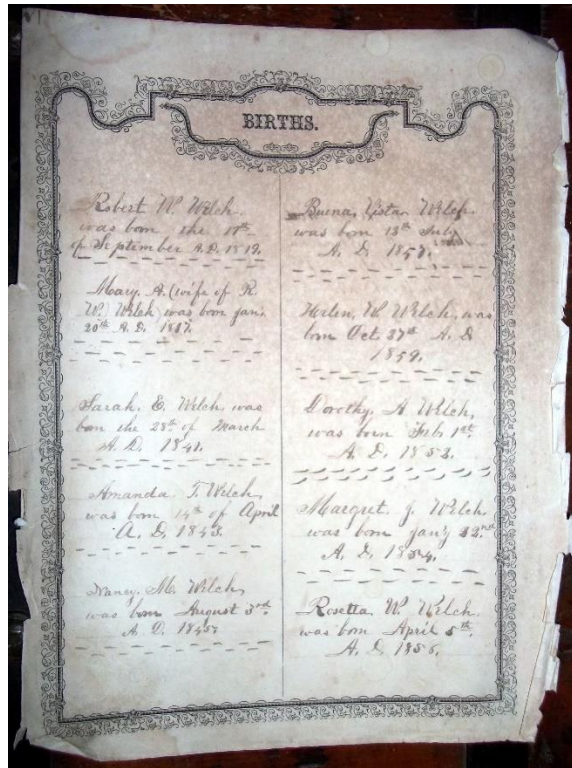 BIRTHS.
Robert W. Welch
was born the
of September A.D. 1819.
Mary, A. (wife of R.
W.) Welch was born Jan'y
20th A. D. 1817.
Sarah, E. Welch, was
born the 28th of March
A. D. 1841.
Amanda. T. Welch,
was born 14th of April
A. D. 1843.
Nancy, M. Welch,
was born August 3rd
A. D. 1845
Buena, Vista, Welch
was born 13th July
A. D. 185
W Welch, was
born Oct 27th A. D
1859.
Dorothy, A Welch,
was born Feb 1st
A. D. 1852.
Margret. J. Welch
was born Jan'y 22nd
A. D. 1854.
Rosetta W. Welch.
was born April 5th
A. D. 1856.